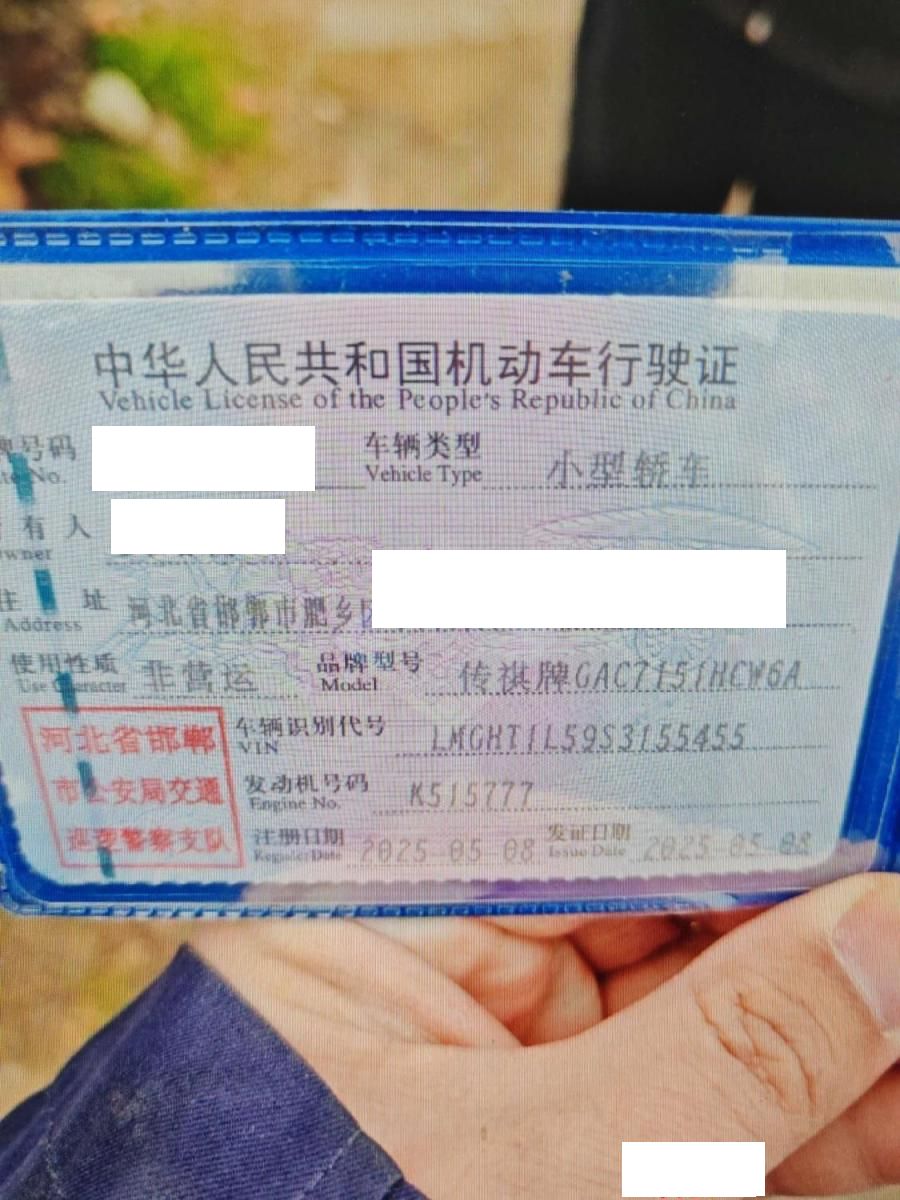 中华人民共和国机动车行驶证
Vehicle License of the People's Republic of China
号码
No.
车辆类型 小型轿车
Vehicle Type
有人
wner
住址 河北省邯郸市肥乡区
Address
使用性质 非营运 品牌型号 传祺牌GAC7151HCW6A
Use Character Model
河北省邯郸
市公安局交通
巡逻警察支队
车辆识别代号 LMGHT1L59S3155455
VIN
发动机号码 K515777
Engine No.
注册日期 2025-05-08 发证日期 2025-05-08
Register Date Issue Date